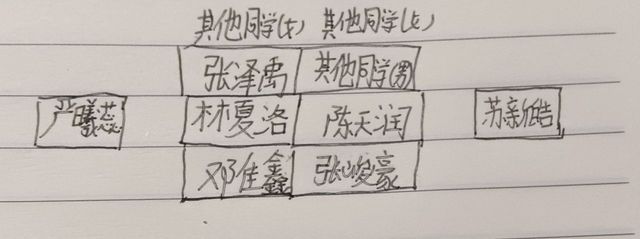 其他同学(女) 其他同学(女)
张泽禹 其他同学(男)
严曦蕊 林夏洛 陈天润 苏新皓
邓佳鑫 张峻豪